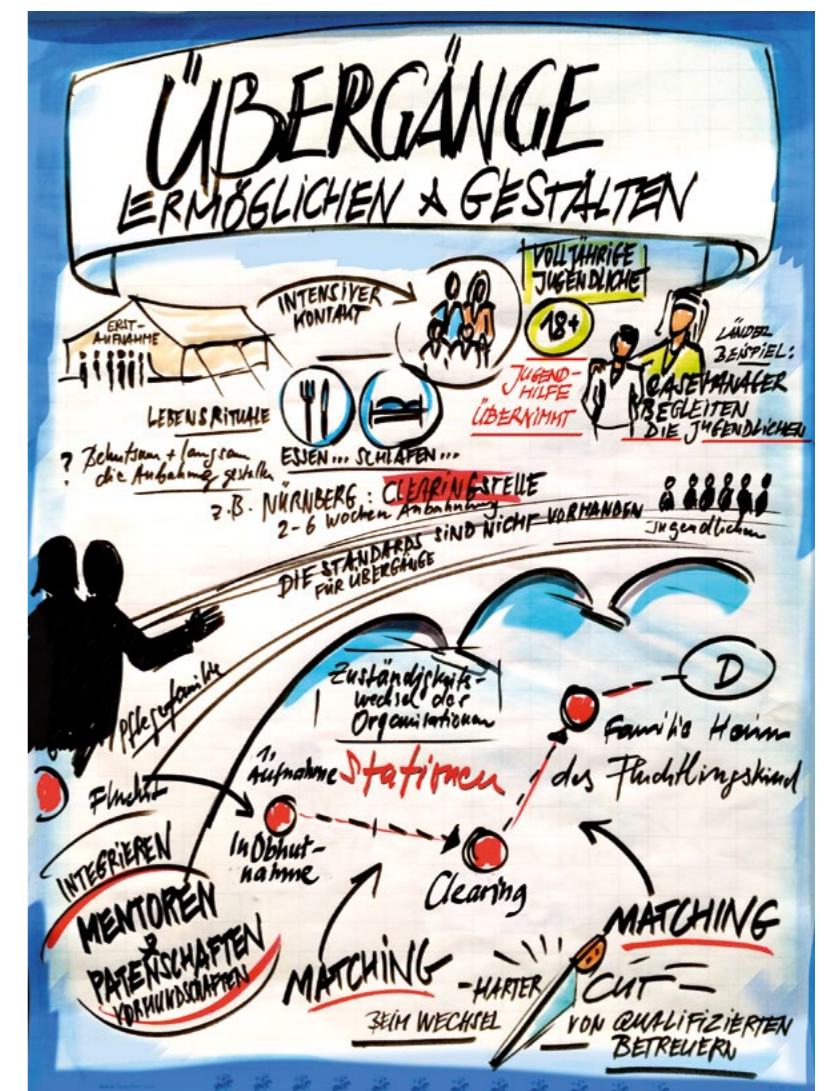 ÜBERGÄNGE
ERMÖGLICHEN & GESTALTEN
ERST-
AUFNAHME
INTENSIVER
KONTAKT
VOLLJÄHRIGE
JUGENDLICHE
18+
JUGEND-
HILFE
ÜBERNIMMT
LÄNDER
BEISPIEL:
CASEMANAGER
BEGLEITEN
DIE JUGENDLICHEN
LEBENSRITUALE
? Behutsam + langsam
die Anbahnung gestalten
ESSEN... SCHLAFEN...
z.B. NÜRNBERG: CLEARINGSTELLE
2-6 Wochen Anbahnung
DIE STANDARDS SIND NICHT VORHANDEN
FÜR ÜBERGÄNGE
Jugendlichen
Pflegefamilie
Zuständigkeits-
wechsel der
Organisationen
D
Familie Heim
des Fluchtlingskind
1.
Aufnahme Stationen
Flucht
InObhut-
nahme
Clearing
INTEGRIEREN
MENTOREN
&
PATENSCHAFTEN
VORMUNDSCHAFTEN
MATCHING
MATCHING
-HARTER CUT-
BEIM WECHSEL VON QUALIFIZIERTEN
BETREUERN